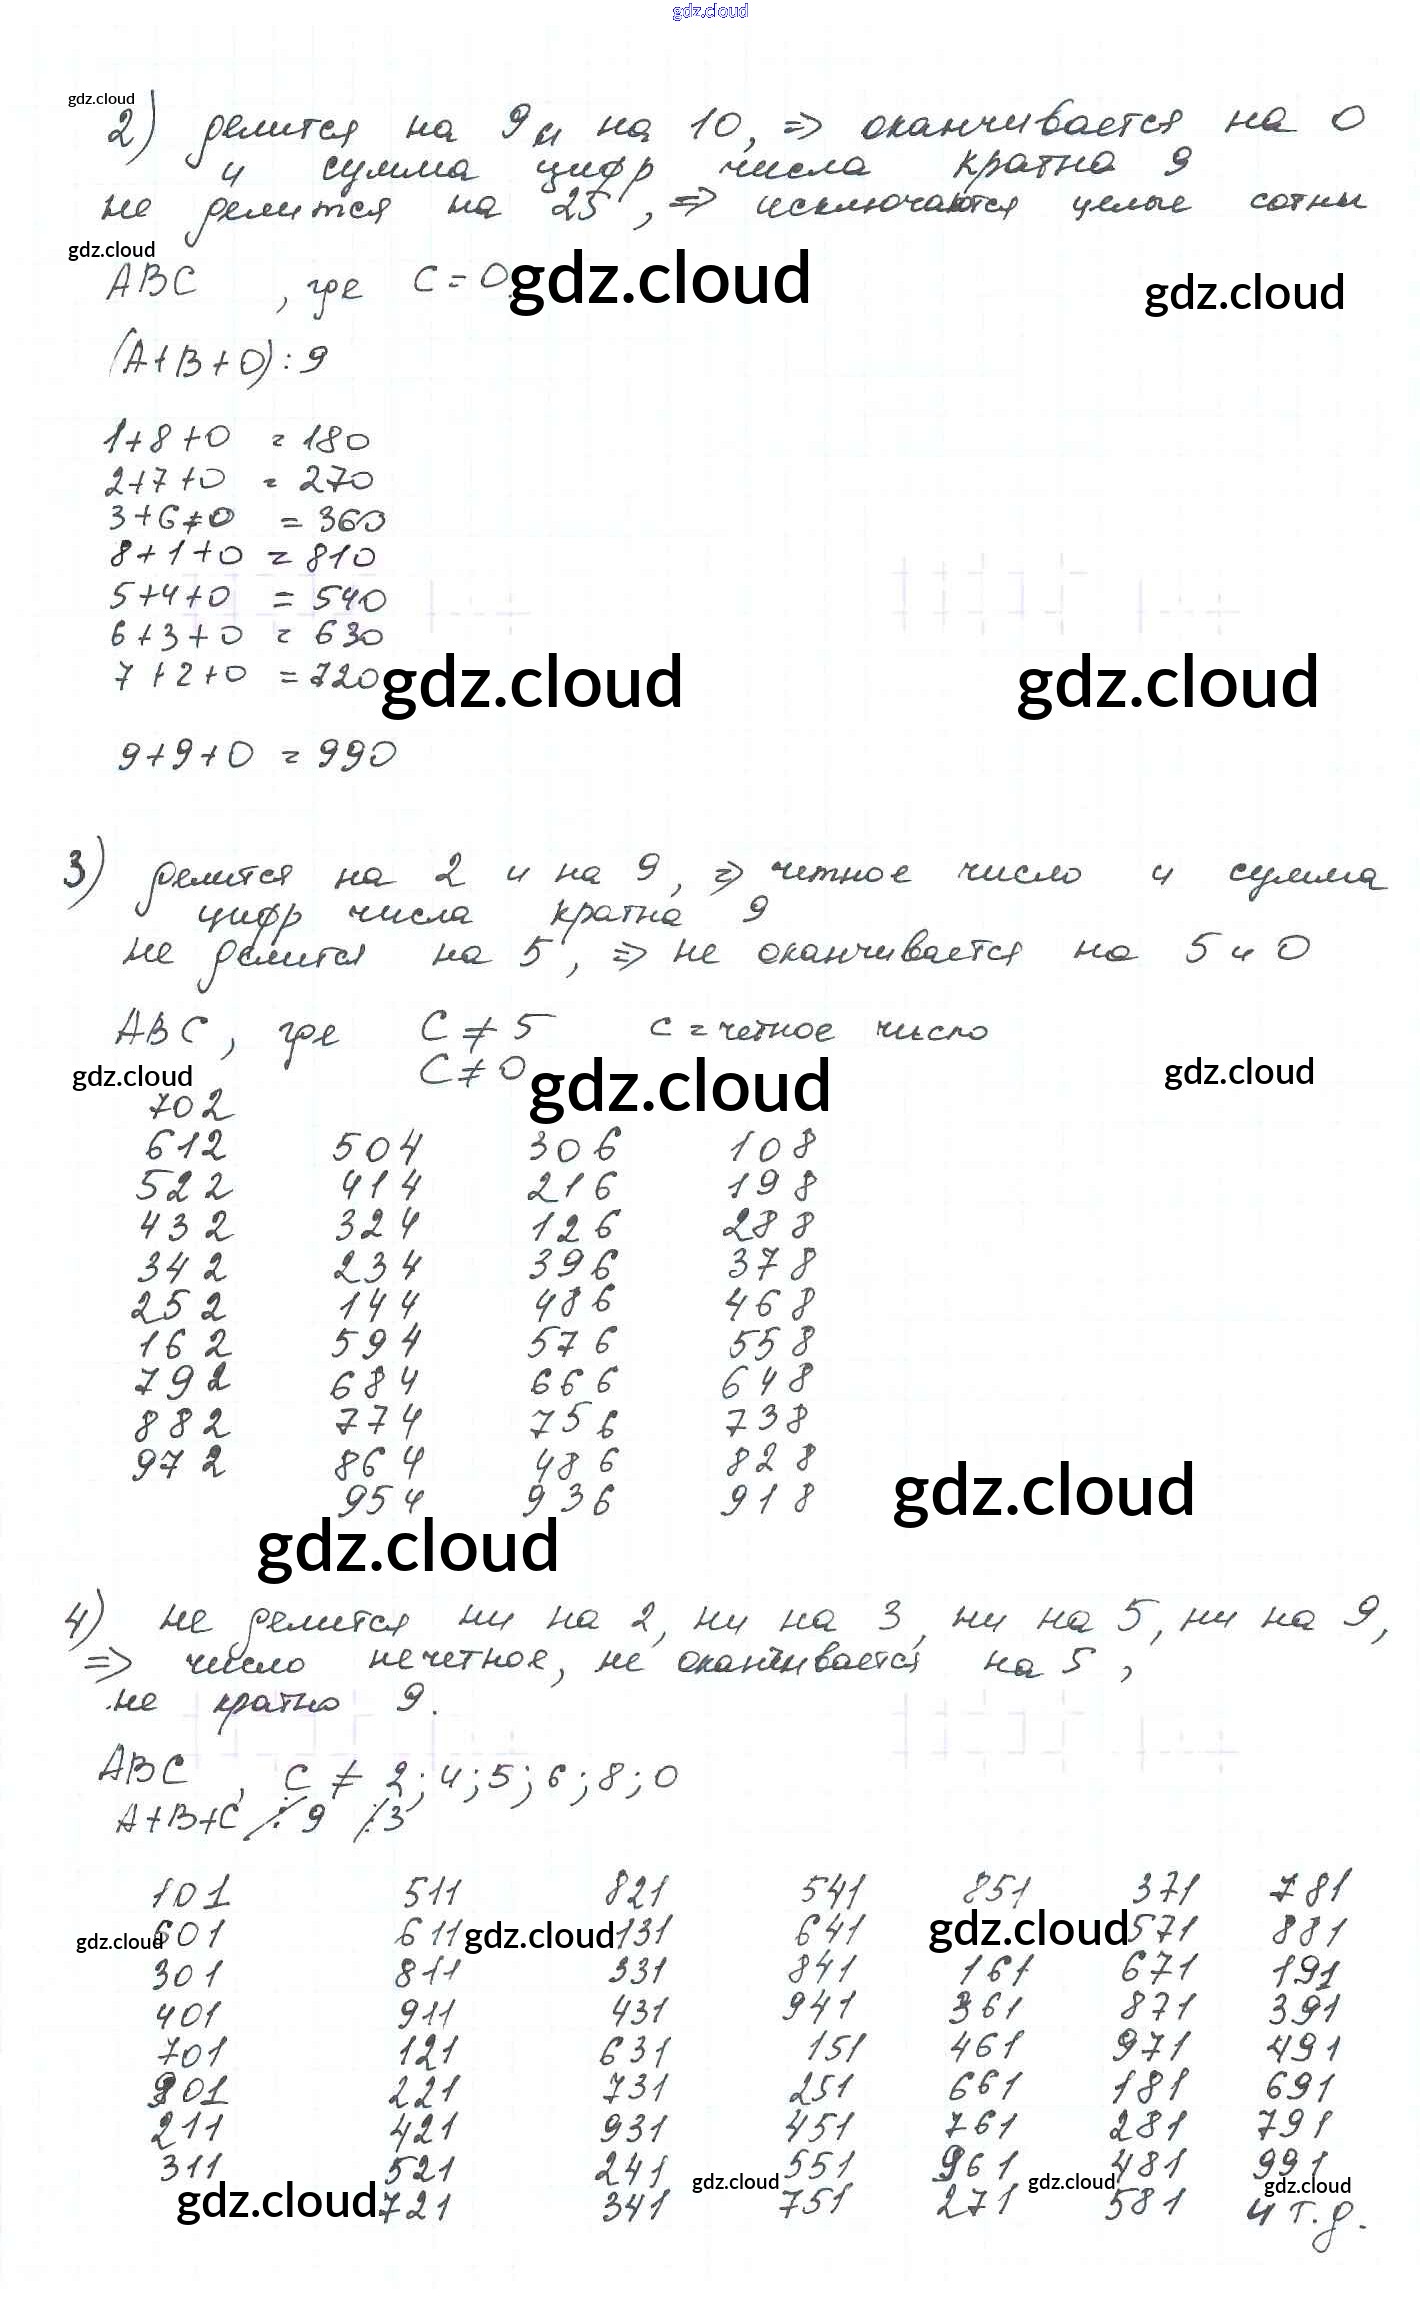 gdz.cloud
gdz.cloud
2) делится на 9 и на 10, => оканчивается на 0
и сумма цифр числа кратна 9
не делится на 25, => исключаются целые сотни
gdz.cloud
ABC , где C = 0. gdz.cloud gdz.cloud
(A+B+0):9
1+8+0 = 180
2+7+0 = 270
3+6+0 = 360
8+1+0 = 810
5+4+0 = 540
6+3+0 = 630
7+2+0 = 720 gdz.cloud gdz.cloud
9+9+0 = 990
3) делится на 2 и на 9, => четное число и сумма
цифр числа кратна 9
не делится на 5, => не оканчивается на 5 и 0
ABC, где C ≠ 5 c = четное число
C ≠ 0
gdz.cloud gdz.cloud gdz.cloud
702
612 504 306 108
522 414 216 198
432 324 126 288
342 234 396 378
252 144 486 468
162 594 576 558
792 684 666 648
882 774 756 738
972 864 486 828
954 936 918
gdz.cloud
gdz.cloud
4) не делится ни на 2, ни на 3, ни на 5, ни на 9,
=> число нечетное, не оканчивается на 5,
не кратно 9.
ABC , C ≠ 2; 4; 5; 6; 8; 0
A+B+C ⋮̸ 9 ⋮̸ 3
101 511 821 541 851 371 781
gdz.cloud gdz.cloud gdz.cloud
601 611 131 641 571 881
301 811 331 841 161 671 191
401 911 431 941 361 871 391
701 121 631 151 461 971 491
901 221 731 251 661 181 691
211 421 931 451 761 281 791
311 521 241 551 961 481 991
gdz.cloud gdz.cloud gdz.cloud gdz.cloud
721 341 751 271 581 и т.д.